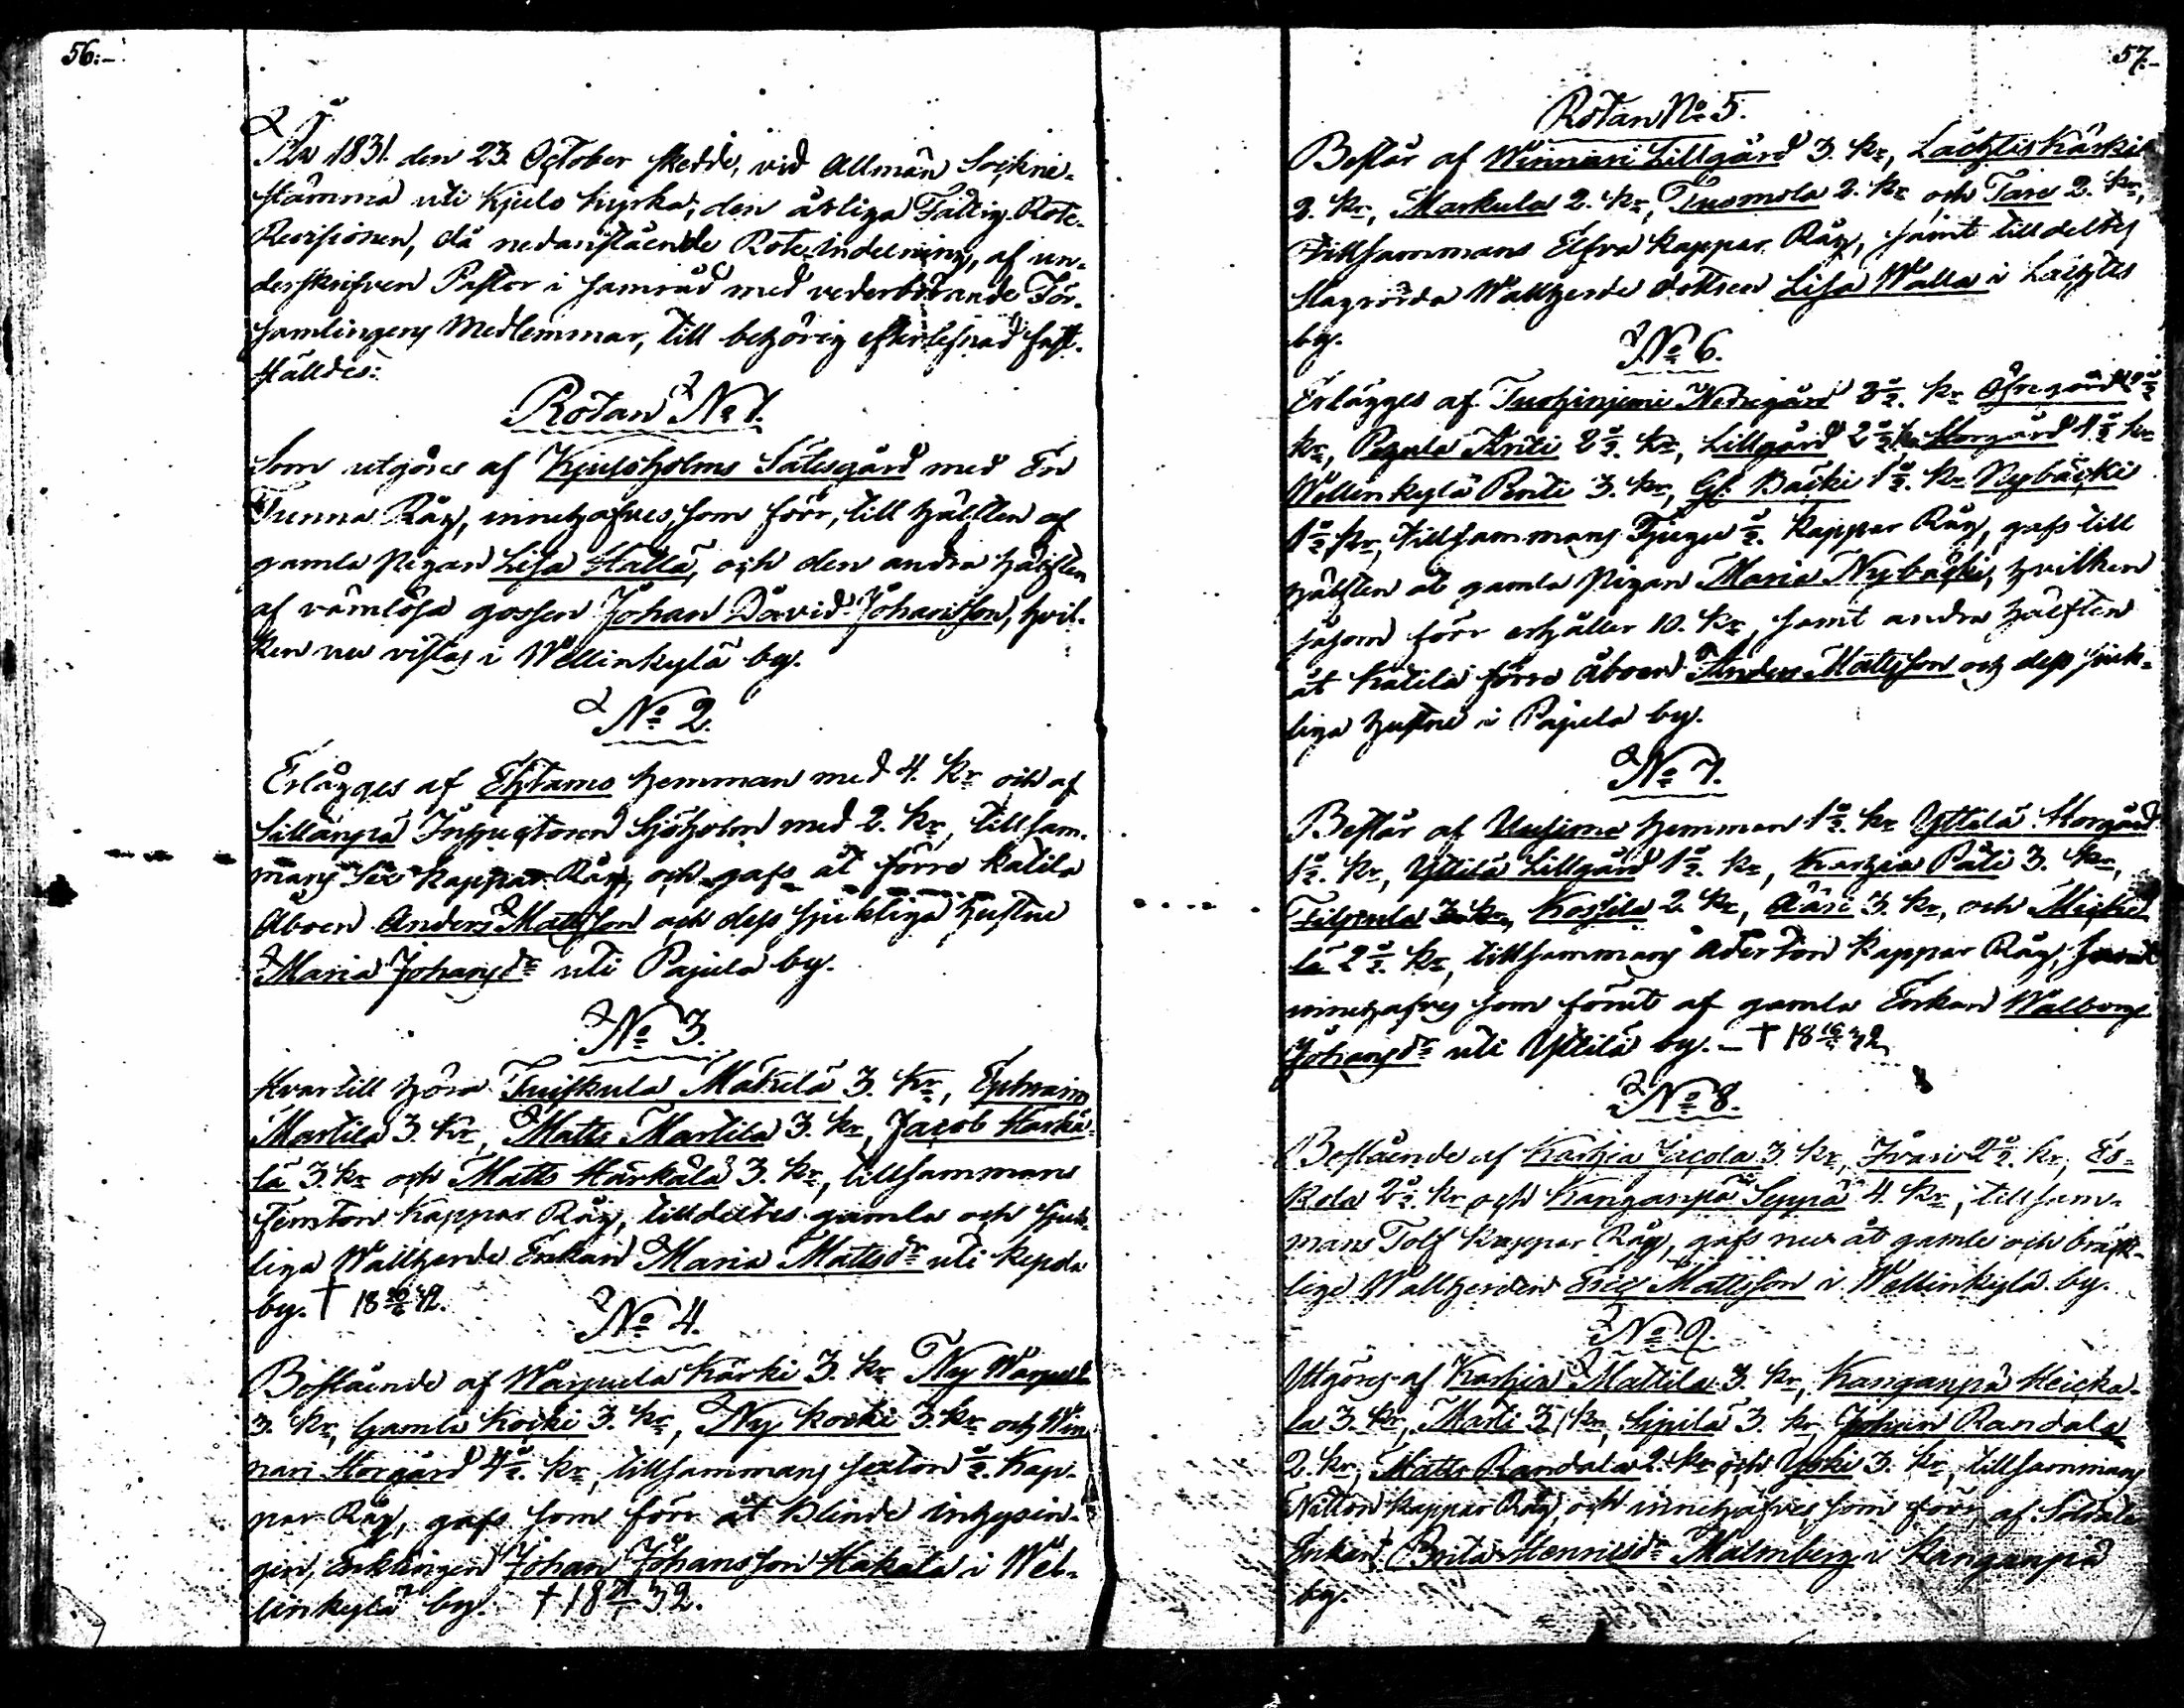 56:-
År 1831. den 23. October skedde, vid Allmän Sockne-
stämma uti Kjulo kyrka, den årliga Fattig-Rote-
Revisionen, då nedanstående Rote-Indelning, af un-
derskrifven Pastor i samråd med vederbörande För-
samlingens Medlemmar, till behörig efterlefnad fast-
ställdes:
Rotan No 1.
Som utgöres af Kjuloholms Sätesgård med En
Tunna Råg, innehafves som förr, till hälften af
gamla Pigan Lisa Halla, och den andra hälften
af vämlösa gossen Johan David Johansson, hvil-
ken nu vistas i Wellinkylä by.
No 2.
Erlägges af Ehtamo hemman med 4. kr och af
Sällänpä Inspectoren Sjöholm med 2. kr, tillsam-
mans Sex kappar Råg, och gafs åt förre Katila
Åboen Anders Mattsson och dess sjukliga hustru
Maria Johansdr uti Pajula by.
No 3.
Hvartill höra Tuiskula Mäkelä 3. kr, Ephraim
Martila 3. kr, Matts Martila 3. kr, Jacob Härkä-
lä 3. kr och Matts Härkälä 3. kr, tillsammans
Femton kappar Råg, tilldeltes gamla och sjuk-
liga Wallherde Enkan Maria Mattsdr uti Kepola
by. † 18 42.
No 4.
Bestående af Warpula Kärki 3. kr Ny Warpula
3. kr, Gamla Koski 3. kr, Ny Koski 3. kr och Win-
nari Storgård 4½. kr, tillsammans sexton ½. kap-
par Råg, gafs som förr åt Blinde inhysin-
gen, Enklingen Johan Johansson Hakala i Wel-
linkylä by. † 18 32.
57.-
Rotan No 5.
Består af Winnari Lillgård 3. kr, Lächtis Kärki
2. kr, Markula 2. kr, Tuomola 2. kr och Tare 2. kr,
tillsammans Elfva kappar Råg, samt tilldeltes
slagrörda Wallherde dottren Lisa Walla i Lächtis
by.
No 6.
Erlägges af Tuohiniemi Nedregård 2½. kr Öfregård 2½
kr, Pajula Antti 2½. kr, Lillgård 2½ kr Storgård 4½ kr
Wellinkylä Pentti 3. kr, Gl. Bäcki 1½. kr Nybäcki
1½ kr, tillsammans Tjugu ½. kappar Råg, gafs till
hälften åt gamla Pigan Maria Nybäcki, hvilken
såsom förr erhåller 10. kr, samt andra hälften
åt Katila förre Åboen Anders Mattsson och dess sjuk-
liga hustru i Pajula by.
No 7.
Består af Uusimo hemman 1½. kr Yttilä Storgård
1½. kr, Yttilä Lillgård 1½. kr, Karhia Päti 3. kr,
3. kr, Koskila 2. kr, Ääri 3. kr, och Mickel
lä 2½. kr, tillsammans Aderton kappar Råg,
innehafves som förut af gamla Enkan Walborg
Johansdr uti Yttilä by. - † 18 32
No 8.
Bestående af Karhia Jacola 3. kr, Ivari 2½. kr, Es-
kola 2½. kr och Kanganpä Seppä 4. kr, tillsam-
mans Tolf kappar Råg, gafs nu åt gamle och bräck-
lige Wallherden Eric Mattsson i Wellinkylä by.
No 9.
Utgöres af Karhia Mattila 3. kr, Kanganpä Heicka-
la 3. kr, Marti 3. kr, Sipilä 3. kr Johan Randala
2. kr, Matts Randala 2. kr och Yrki 3. kr, tillsammans
Nitton kappar Råg, och innehafves som förr af Soldate
Enkan Brita Henricsdr Malmberg i Kanganpä
by.